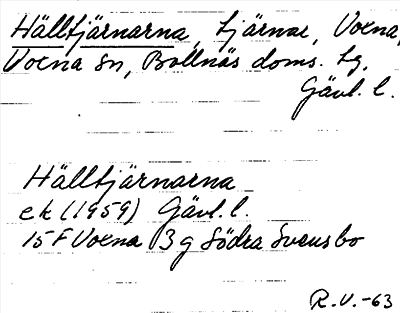 Hälltjärnarna, tjärnar, Voxna,
Voxna sn, Bollnäs doms. tg,
Gävl. l.
Hälltjärnarna
ek (1959) Gävl. l.
15 F Voxna 3 g Södra Svensbo
R.V.-63